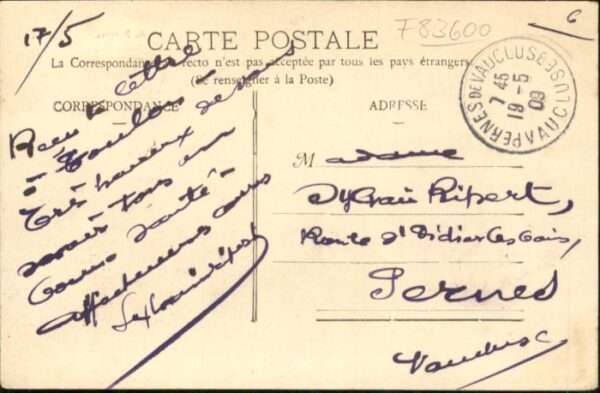 17/5
F83600
6
CARTE POSTALE
La Correspondance au recto n'est pas acceptée par tous les pays étrangers
(Se renseigner à la Poste)
CORRESPONDANCE
ADRESSE
PERNES DE VAUCLUSE
7 45
19 - 5
09
VAUCLUSE
Reçu ta lettre
à Toulon
Très heureux de vous
savoir tous en
bonne santé -
Affectueusement
Madame
Sylvain Ripert,
Route St Didier les Bains,
Pernes
Vaucluse